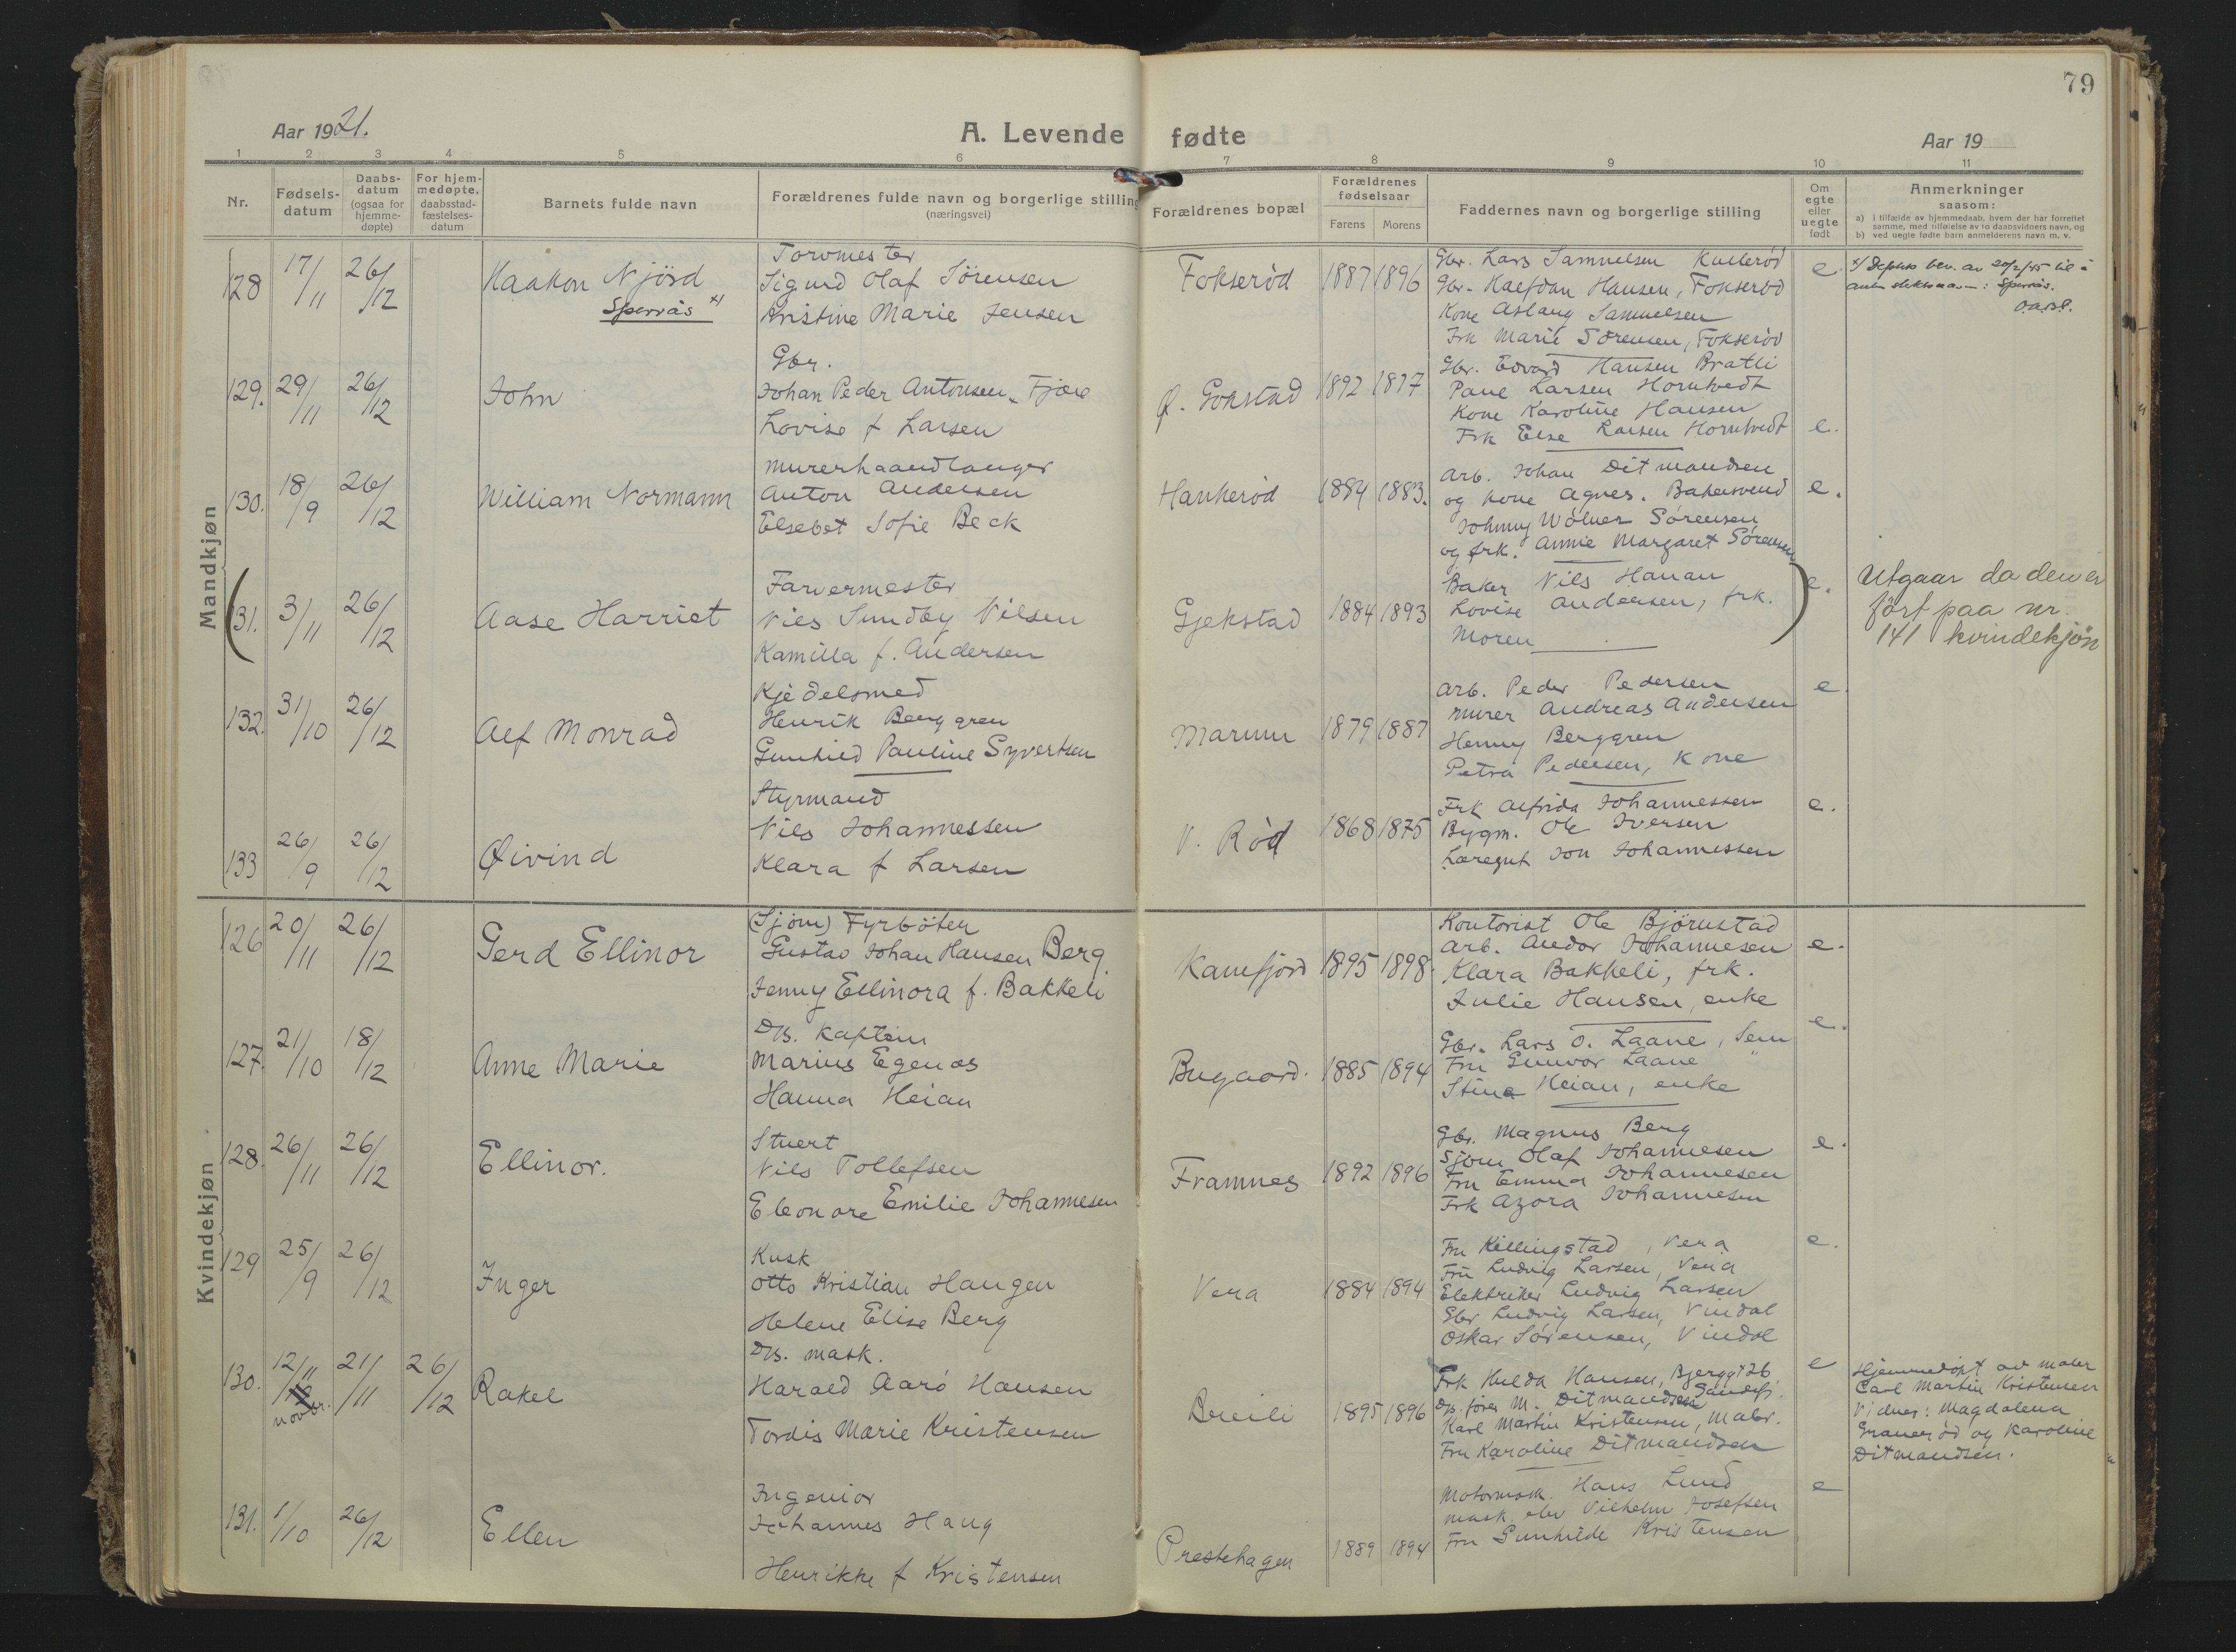 79
Aar 1921.
A. Levende fødte
Aar 19
1 2 3 4 5 6 7 8 9 10 11
Nr.
Fødsels-
datum
Daabs-
datum
(ogsaa for
hjemme-
døpte)
For hjem-
medøpte,
daabsstad-
fæstelses-
datum
Barnets fulde navn
Forældrenes fulde navn og borgerlige stilling
(næringsvei)
Forældrenes bopæl
Forældrenes
fødselsaar
Farens Morens
Faddernes navn og borgerlige stilling
Om
egte
eller
uegte
født
Anmerkninger
saasom:
a) i tilfælde av hjemmedaab, hvem der har forrettet
samme, med tilføielse av to daabsvidners navn, og
b) ved uegte fødte barn anmelderens navn m. v.
Mandkjøn
128 17/11 26/12
Haakon Njörd
Spervås x)
Torvmester
Sigurd Olaf Sörensen
Kristine Marie Jensen
Fokseröd 1887 1896
Gbr. Lars Samuelsen Kulleröd
Gbr. Halfdan Hansen, Fokseröd
Kone Aslaug Samuelsen
Frk Marie Sörensen, Fokseröd
e.
x) Depchs bev. av 20/2/45 til å
: Spervås.
129. 29/11 26/12
John
Gbr.
Johan Peder Antonsen Fjære
Lovise f Larsen
Ø. Gokstad 1892 1877
Gbr. Edvard Hansen Bratli
Paul Larsen Horntvedt
Kone Karoline Hansen
Frk Else Larsen Horntvedt
e.
130. 18/9 26/12
William Normann
Murerhaandlanger
Anton Andersen
Elsebet Sofie Beck
Hankeröd 1884 1883.
Arb. Johan Ditmandsen
og kone Agnes. Bakersvend
Johnny Wölner Sörensen
og frk. Annie Margaret Sörensen
e.
131. 3/11 26/12
Aase Harriet
Farvermester
Nils Sundby Nilsen
Kamilla f. Andersen
Gjekstad 1884 1893
Baker Nils Hanan
Lovise Andersen, frk.
Moren
e.
Utgaar da den er
fört paa nr.
141 kvindekjön
132. 31/10 26/12
Alf Monrad
Kjedelsmed
Henrik Berggren
Gunhild Pauline Syvertsen
Marum 1879 1887
Arb. Peder Pedersen
Murer Andreas Andersen
Henny Berggren
Petra Pedersen, Kone
e.
133 26/9 26/12
Øivind
Styrmand
Nils Johannessen
Klara f Larsen
V. Röd 1868 1875
Frk Alfrida Johannessen
Bygm. Ole Iversen
Læregut Jon Johannessen
e.
Kvindekjøn
126 20/11 26/12
Gerd Ellinor
(Sjöm) Fyrböter
Gustav Johan Hansen Berg
Jenny Ellinora f. Bakkeli
Kamfjord 1895 1898.
Kontorist Ole Björnstad
Arb. Andor Johannesen
Klara Bakkeli, frk.
Julie Hansen, enke
e.
127. 21/10 18/12
Anne Marie
Ds. Kaptein
Marius Egenæs
Hanna Heian
Bugaard. 1885 1894
Gbr. Lars O. Laane, Sem
Fru Gunvor Laane "
Stina Heian, enke
e.
128. 26/11 26/12
Ellinor.
Stuert
Nils Tollefsen
Eleonore Emilie Johannesen
Framnes 1892 1896
Gbr. Magnus Berg
Sjöm Olaf Johannesen
Fru Emma Johannesen
Frk Azora Johannesen
e.
129 25/9 26/12
Inger
Kusk
Otto Kristian Haugen
Helene Elise Berg
Vera 1884 1894
Fru Killingstad, Vera
Fru Ludvig Larsen, Vera
Elektriker Ludvig Larsen
Gbr Ludvig Larsen, Vindal
Oskar Sörensen, Vindal
e.
130. 12/11 novbr. 21/11 26/12
Rakel
Ds. mask.
Harald Aarö Hansen
Tordis Marie Kristensen
Breili 1895 1896
Frk Hulda Hansen, Bjerggt 26
Sandefj.
Ds. förer M. Ditmandsen
Karl Martin Kristensen, maler.
Fru Karoline Ditmandsen
e
Hjemmedöpt av maler
Carl Martin Kristensen
Vidner: Magdalena
Graneröd og Karoline
Ditmandsen.
131. 1/10 26/12
Ellen
Ingeniör
Johannes Haug
Henrikke f Kristensen
Prestehagen 1889 1894
Motormask. Hans Lund
Mask. elev Vilhelm Josefsen
Fru Gunhilde Kristensen
e